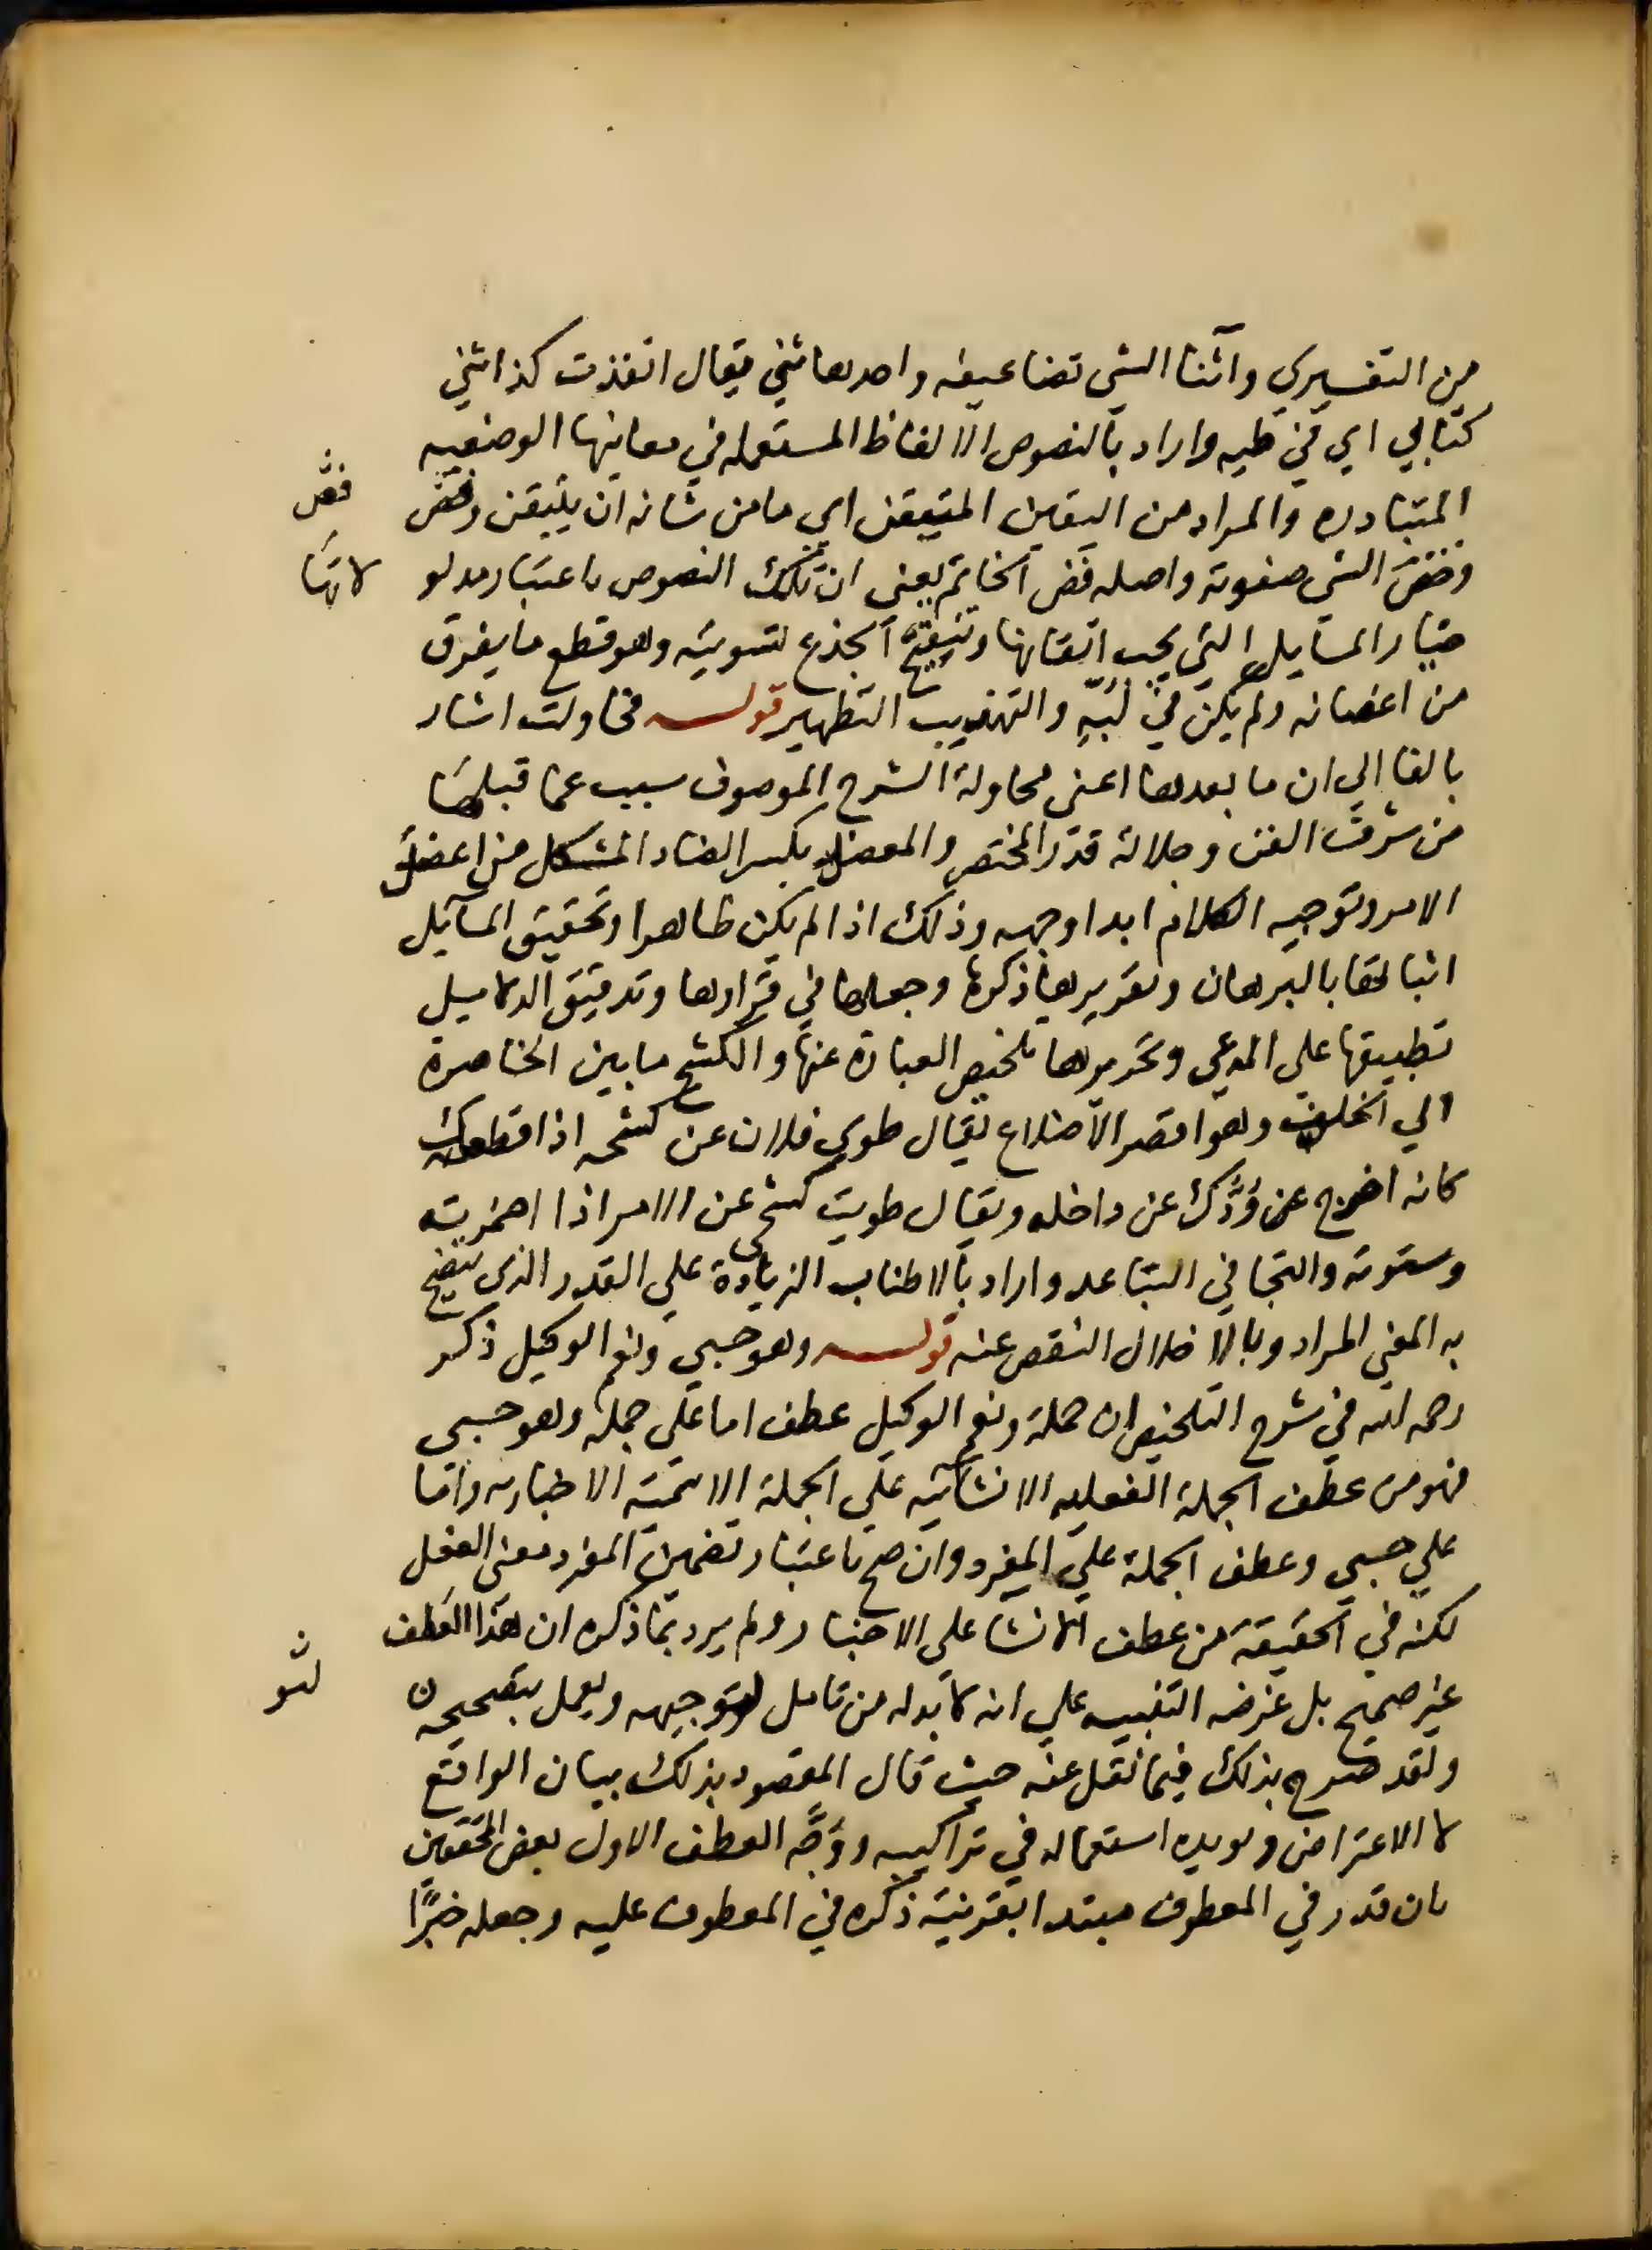 من التفسيري واثنا الشي تضاعيفه واحدها ثني يقال انفذت كذا ثني
كتابي اي في طيه واراد بالنصوص الالفاظ المستعمله في معانيها الوضعيه
المتبادره والمراد من اليقين المتيقن اي ما من شانه ان يتيقن وفص
فص
وفص الشي صفوته واصله فص الخاتم يعني ان تلك النصوص باعتبار مدلو
لاتها
خيار المسايل التي يجب اتقانها وتنقيح الجذع تسويته وهو قطع ما يفرق
من اغصانه ولم يكن في لبه والتهذيب التطهير قوله فحاولت اشار
بالفا الي ان ما بعدها اعني محاولة الشرح الموصوف سبب عما قبلها
من شرف الفن وجلالة قدر المختصر والمعضل بكسر الضاد المشكل من اعضل
الامر وتوجيه الكلام ابدا وجهه وذلك اذا لم يكن ظاهرا وتحقيق المسايل
اثباتها بالبرهان وتقريرها ذكرها وجعلها في قرارها وتدقيق الدلايل
تطبيقها على المدعي وتحريرها تلخيص العبارة عنها والكشح ما بين الخاصرة
الي الخلف وهو اقصر الاضلاع يقال طوي فلان عن كشحه اذا قطعك
كانه اخرج عن ودك عن داخله ويقال طويت كشحي عن الامر اذا اضمرته
وسترته والتجافي التباعد واراد بالاطناب الزيادة علي القدر الذي يتضح
به المعني المراد وبالاخلال النقص عنه قوله وهو حسبي ونعم الوكيل ذكر
رحمه الله في شرح التلخيص ان جملة ونعم الوكيل عطف اما علي جملة وهو حسبي
فهو من عطف الجملة الفعليه الانشائيه علي الجملة الاسمية الاخباريه واما
علي حسبي وعطف الجملة علي المفرد وان صح باعتبار تضمين المفرد معنى الفعل
لكنه في الحقيقة من عطف الانشا علي الاخبار ولم يرد بما ذكره ان هذا العطف
غير صحيح بل غرضه التنبيه علي انه لا بد له من تامل لتوجيهه ويعمل بتصحيحه
لتو
ولقد صرح بذلك فيما نقل عنه حيث قال المقصود بذلك بيان الواقع
لا الاعتراض ويويده استعماله في تراكيبه ووجه العطف الاول بعض المحققين
بان قدر في المعطوف مبتدا بقرينة ذكره في المعطوف عليه وجعله خبرا